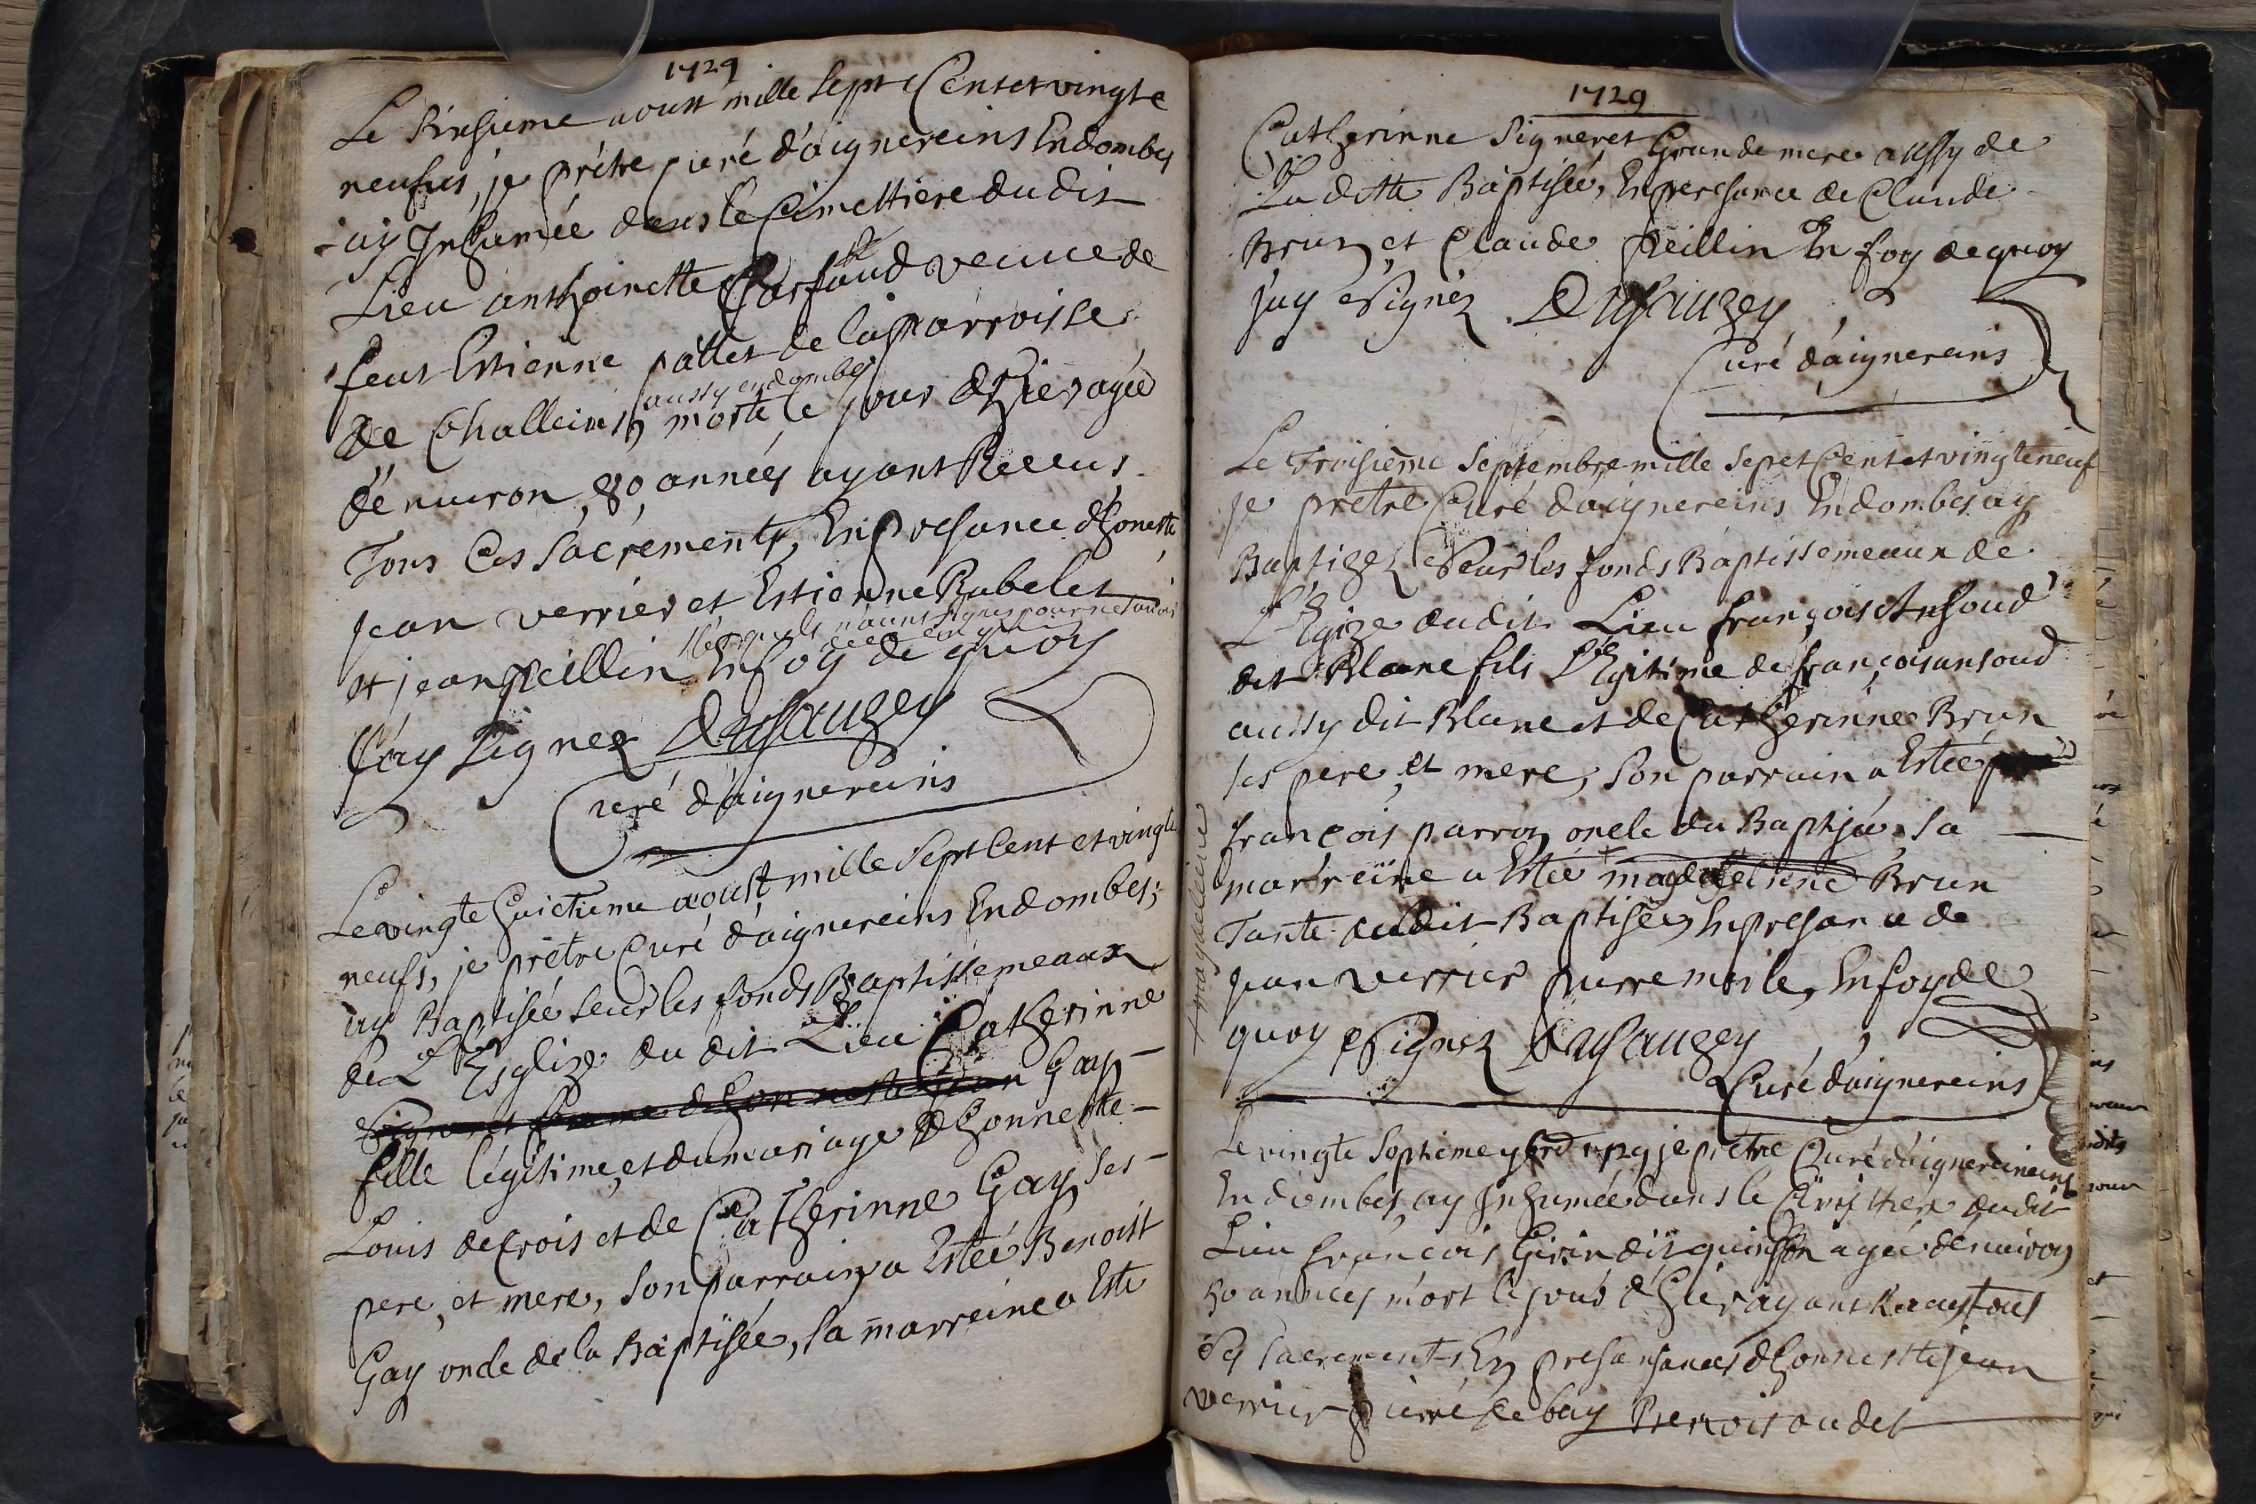 1729
Le sixsieme aoust mille sept Cent et vingte
neufvs, je prétre curé d'aignereins Endombes
ay Inhumée dans le Cimettiere dudit
Lieu anthoinette veuve de
feut Estienne pattet de la parroisse
aussy endombes
de Challeins, morte le jour d'hier agée
d'enuiron 80 années ayant Receus
Tous Ces Sacrements, En presance d'honeste
Jean verrier et Estienne Rubelet
lesquels n'aunt signes pour ne scavoir
et jean peillin En foy de quoy
j'ay signez Dusauzey
Curé d'aignereins
Le vingte huictieme aoust mille Sept Cent et vingte
neufs, je prétre Curé d'aignereins Endombes;
ay Baptisée seur les fonds Baptissemeaux
de L'Esglize du dit Lieu Catherinne
Gay
fille légitime, et du mariage D'honneste
Louis decrois et de Catherinne Gay ses
pere, et mere, Son parrain a Estée Benoist
Gay oncle de la Baptisée, Sa marreine a Esté
1729
Catherinne Signeret Grande mere aussy de
La ditte Baptisée, En presance de Claude
Brun, et Claude peillin En foy de quoy
j'ay Signéz Dusauzey
Curé d'aignereins
Le Troisieme Septembre mille Sept Cent et vingte neuf
je prétre Curé d'aignereins Endombes ay
Baptizez Seur les fonds Baptissemeaux de
L'Eglize dudit Lieu françois Ansoud
dit Blanc fils Légitime de françois ansoud
aussy dit Blanc et de Catherinne Brun
ses pere, et mere, Son parrain a Estée
françois parroz oncle du Baptisée, Sa
marreine a Estée + magdeleine Brun
+ magdeleine
Tante dudit Baptisée, En presance de
Jean verrier pierre moile, En foy de
quoy Signez Dusauzey
Curé d'aignereins
Le vingte Septieme 1729 je prétre Curé d'aignereineins
Endombes, ay Inhumée dans le Cimittiere dudit
Lieu françois Girin dit quinsson agée d'enuiron
années mort le jour d'hier, ayant Receus tous
Ses Sacrements, En presansances d'honneste jean
verrier pierre Benoist audet